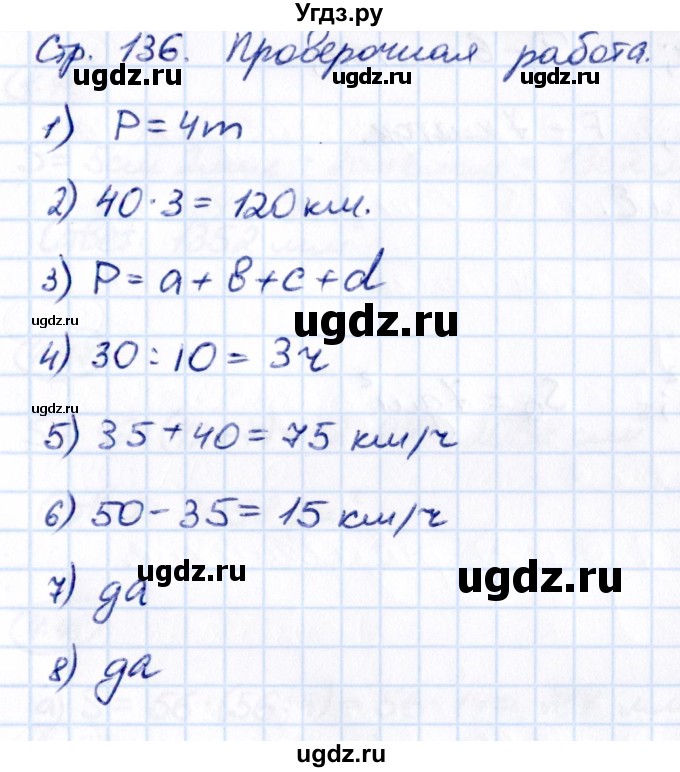 Угдз.ру
Стр. 136. Проверочная работа.
ugdz.ru ugdz.ru
1) P = 4m
2) 40 · 3 = 120 км.
3) P = a + b + c + d
ugdz.ru ugdz.ru
4) 30 : 10 = 3 ч
ugdz.ru
5) 35 + 40 = 75 км/ч
6) 50 - 35 = 15 км/ч
ugdz.ru ugdz.ru
7) да
8) да
ugdz.ru